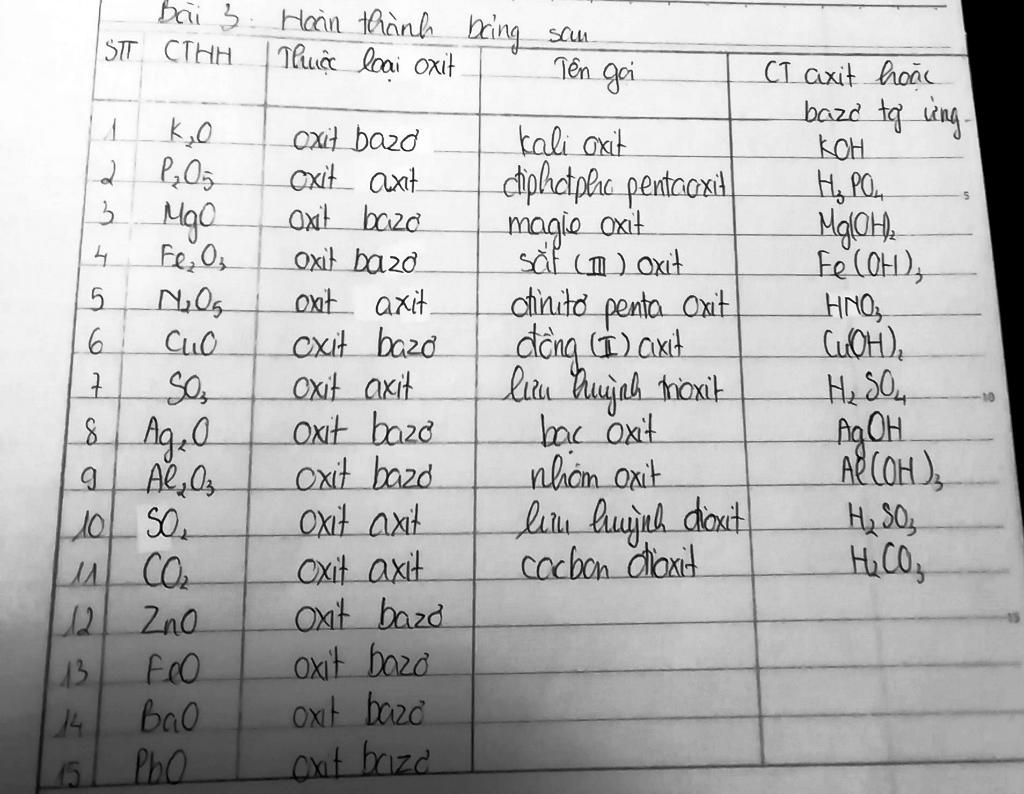 Bài 3: Hoàn thành bảng sau
STT CTHH Thuộc loại oxit Tên gọi CT axit hoặc bazơ tợ ứng
1 K₂O oxit bazơ kali oxit KOH
2 P₂O₅ oxit axit điphotpho pentaoxit H₃PO₄
3 MgO oxit bazơ magie oxit Mg(OH)₂
4 Fe₂O₃ oxit bazơ sắt (III) oxit Fe(OH)₃
5 N₂O₅ oxit axit đinitơ penta oxit HNO₃
6 CuO oxit bazơ đồng (I) axit Cu(OH)₂
7 SO₃ oxit axit lưu huỳnh trioxit H₂SO₄
8 Ag₂O oxit bazơ bạc oxit AgOH
9 Al₂O₃ oxit bazơ nhôm oxit Al(OH)₃
10 SO₂ oxit axit lưu huỳnh đioxit H₂SO₃
11 CO₂ oxit axit cacbon đioxit H₂CO₃
12 ZnO oxit bazơ
13 FeO oxit bazơ
14 BaO oxit bazơ
15 PbO oxit bazơ
5
10
15